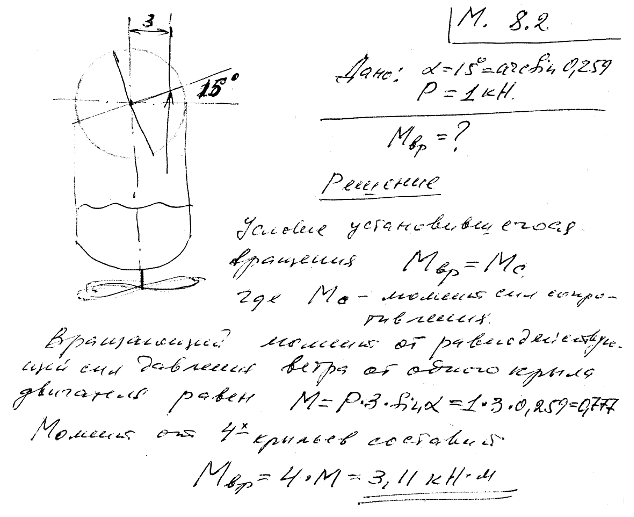 3
М. 8.2.
15°
Дано: α=15°=arcsin 0,259
P = 1 кН.
Mвр = ?
Решение
Условие установившегося
вращения Mвр = Mс
где Mс - момент сил сопро-
тивления.
Вращающий момент от равнодействую-
щей сил давления ветра от одного крыла
двигателя равен M = P·3·sinα = 1·3·0,259=0,777
Момент от 4х крыльев составит
Mвр = 4·M = 3,11 кН·м